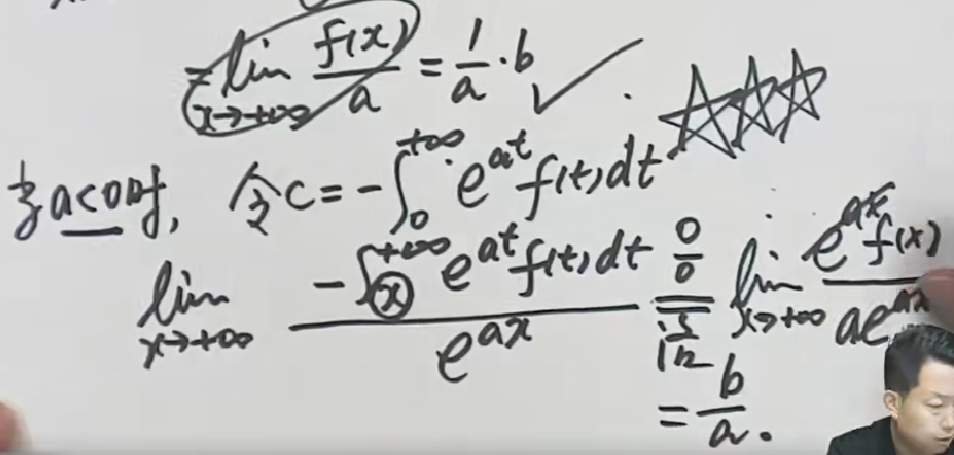 = lim x→+∞ f(x)/a = 1/a · b ✓.
当a<0时, 令C = -∫₀^{+∞} e^{at} f(t)dt
lim x→+∞ -∫ₓ^{+∞} e^{at} f(t)dt / e^{ax} = 0/0 洛 lim x→+∞ e^{ax} f(x) / ae^{ax}
= b/a.